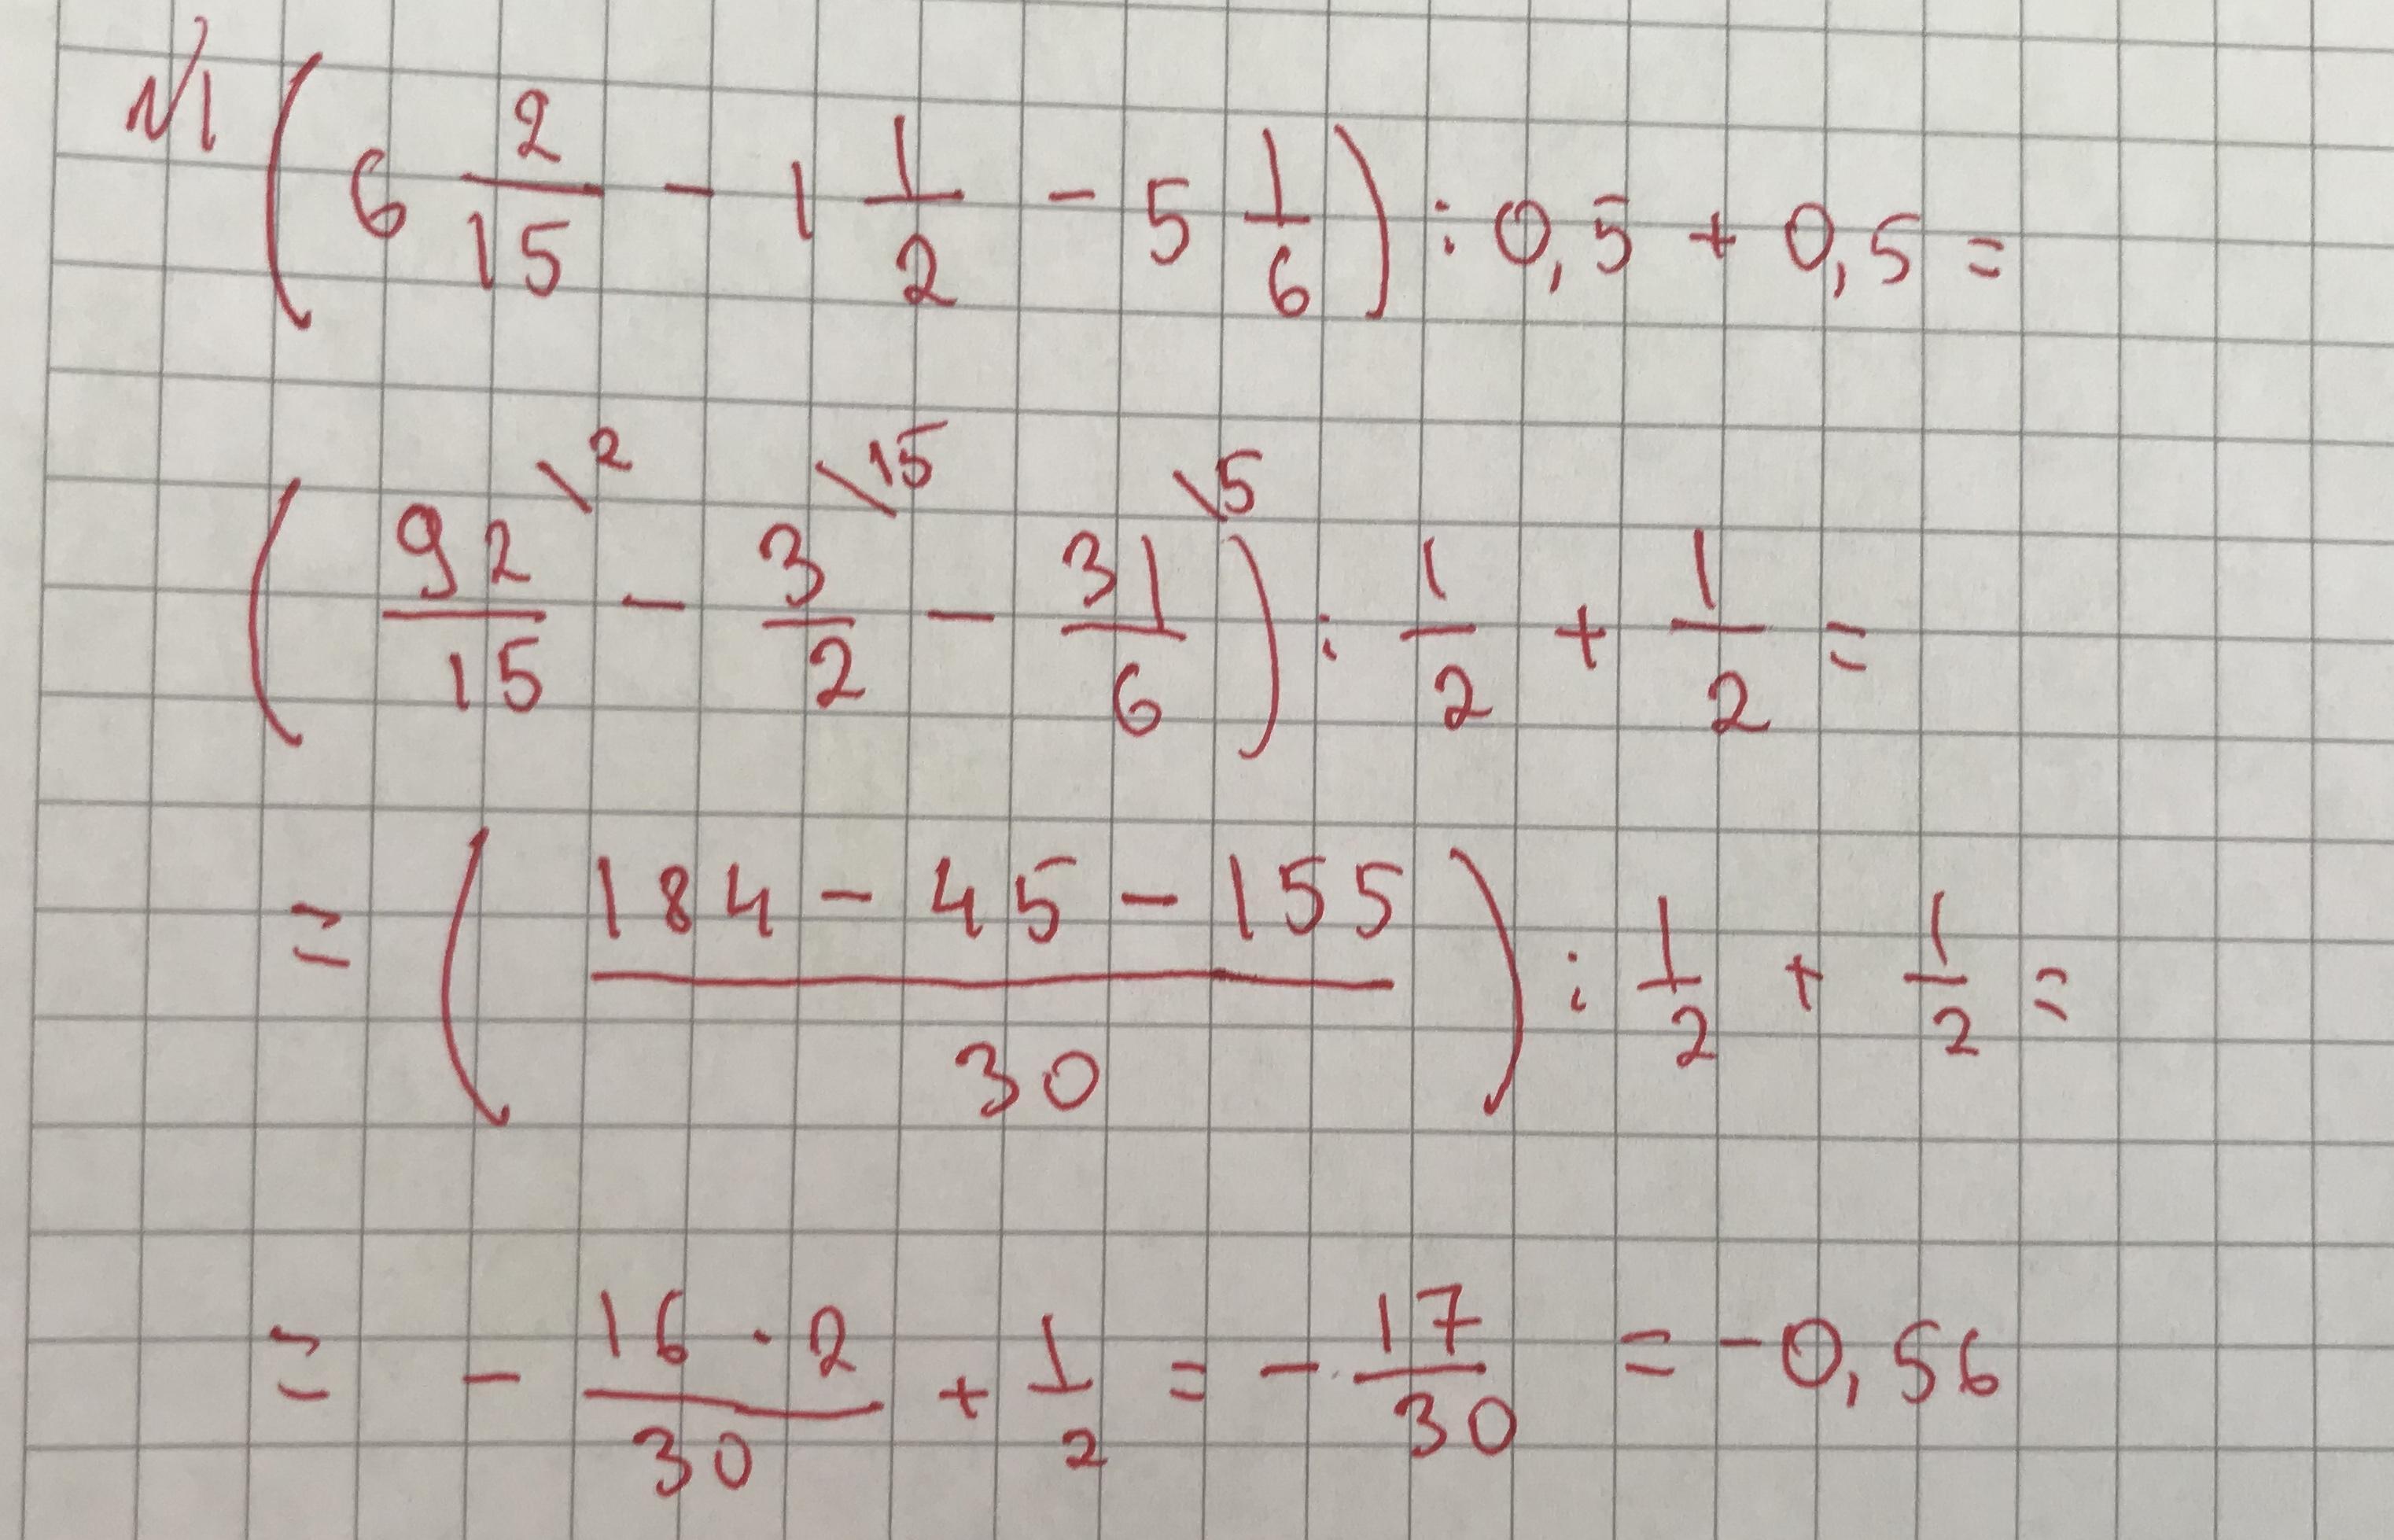 №1 (6 2/15 - 1 1/2 - 5 1/6) : 0,5 + 0,5 =
(92/15 \2 - 3/2 \15 - 31/6 \5) : 1/2 + 1/2 =
= ((184 - 45 - 155)/30) : 1/2 + 1/2 =
= - (16 · 2)/30 + 1/2 = - 17/30 = -0,56